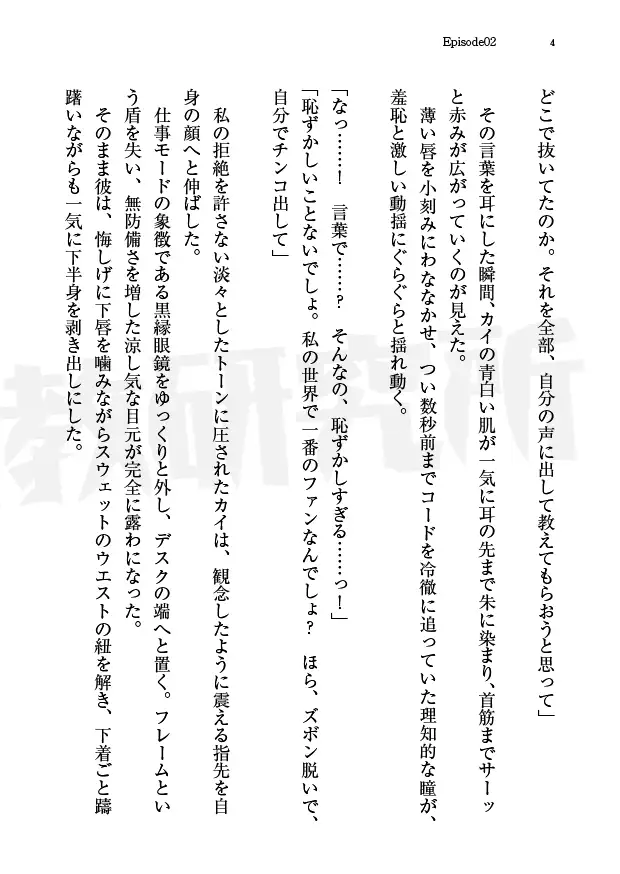 Episode02
4
どこで抜いてたのか。それを全部、自分の声に出して教えてもらおうと思って」
その言葉を耳にした瞬間、カイの青白い肌が一気に耳の先まで朱に染まり、首筋までサーッ
と赤みが広がっていくのが見えた。
薄い唇を小刻みにわななかせ、つい数秒前までコードを冷徹に追っていた理知的な瞳が、
羞恥と激しい動揺にぐらぐらと揺れ動く。
「なっ……！　言葉で……？　そんなの、恥ずかしすぎる……っ！」
「恥ずかしいことないでしょ。私の世界で一番のファンなんでしょ？　ほら、ズボン脱いで、
自分でチンコ出して」
私の拒絶を許さない淡々としたトーンに圧されたカイは、観念したように震える指先を自
身の顔へと伸ばした。
仕事モードの象徴である黒縁眼鏡をゆっくりと外し、デスクの端へと置く。フレームとい
う盾を失い、無防備さを増した涼し気な目元が完全に露わになった。
そのまま彼は、悔しげに下唇を噛みながらスウェットのウエストの紐を解き、下着ごと躊
躇いながらも一気に下半身を剥き出しにした。
教研究所